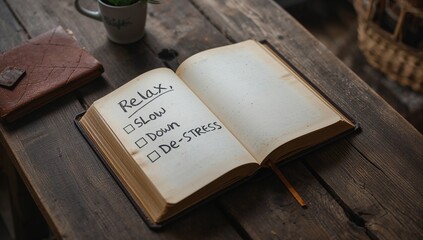 Relax,
SLOW
DOWN
De-STRESS